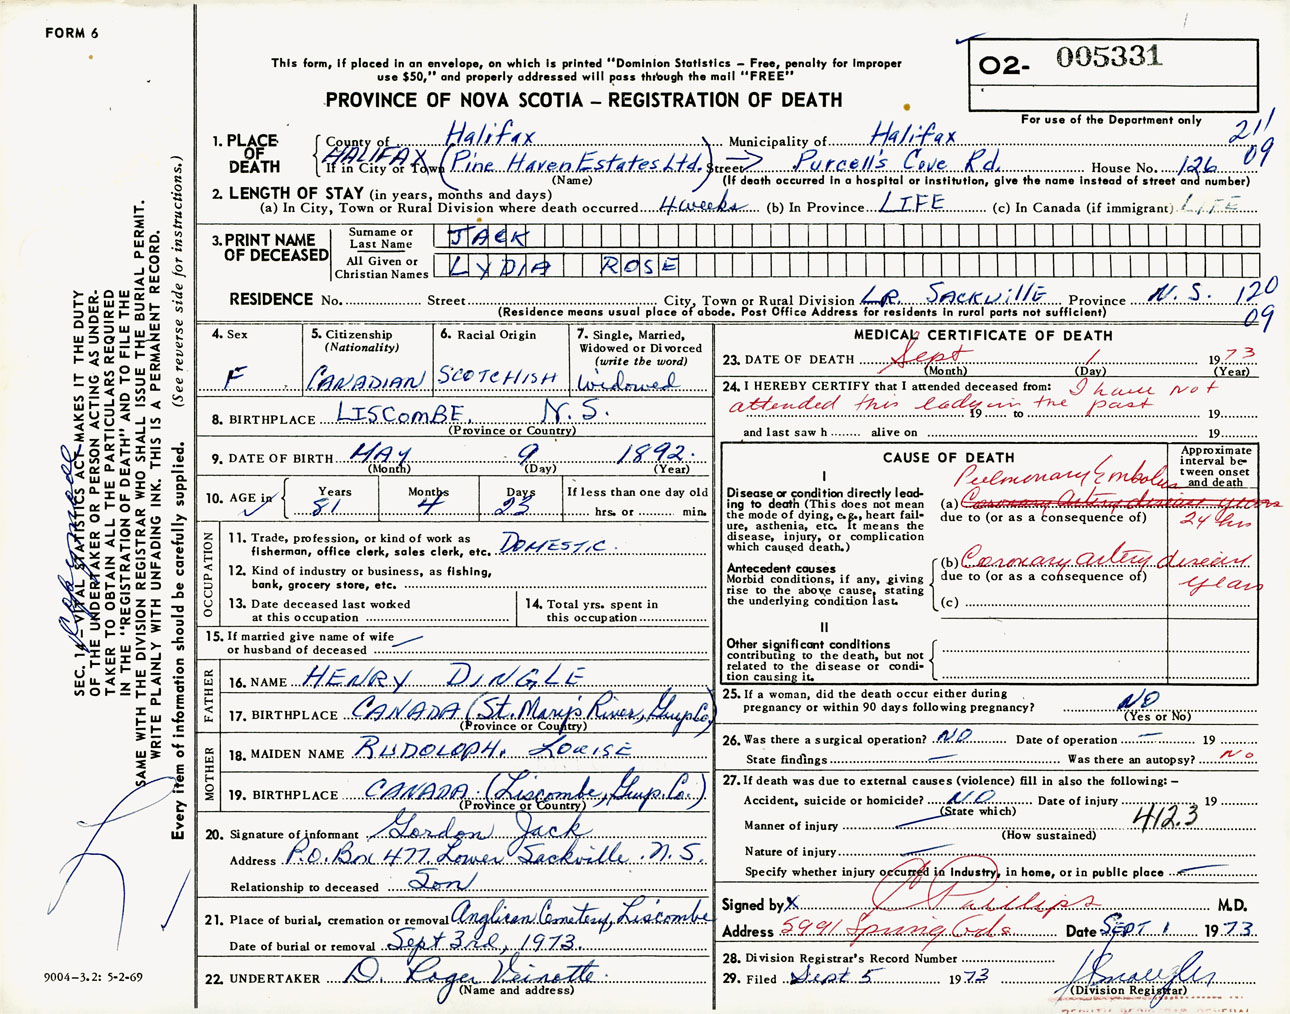 FORM 6
This form, if placed in an envelope, on which is printed "Dominion Statistics – Free, penalty for improper
use $50," and properly addressed will pass through the mail "FREE"
PROVINCE OF NOVA SCOTIA – REGISTRATION OF DEATH
O2- 005331
For use of the Department only
211
09
1. PLACE OF DEATH
County of Halifax Municipality of Halifax
HALIFAX
If in City or Town (Pine Haven Estates Ltd.) Street → Purcell's Cove Rd. House No. 126
(Name) (If death occurred in a hospital or institution, give the name instead of street and number)
2. LENGTH OF STAY (in years, months and days)
(a) In City, Town or Rural Division where death occurred 4 weeks (b) In Province LIFE (c) In Canada (if immigrant) LIFE
3. PRINT NAME OF DECEASED
Surname or Last Name JACK
All Given or Christian Names LYDIA ROSE
RESIDENCE No. Street City, Town or Rural Division LR. SACKVILLE Province N.S. 120
09
(Residence means usual place of abode. Post Office Address for residents in rural parts not sufficient)
4. Sex F
5. Citizenship (Nationality) CANADIAN
6. Racial Origin SCOTCHISH
7. Single, Married, Widowed or Divorced (write the word) Widowed
8. BIRTHPLACE LISCOMBE, N.S.
(Province or Country)
9. DATE OF BIRTH MAY 9 1892.
(Month) (Day) (Year)
10. AGE in Years 81 Months 4 Days 23 If less than one day old
hrs. or min.
OCCUPATION
11. Trade, profession, or kind of work as
fisherman, office clerk, sales clerk, etc. DOMESTIC.
12. Kind of industry or business, as fishing,
bank, grocery store, etc.
13. Date deceased last worked
at this occupation
14. Total yrs. spent in
this occupation
15. If married give name of wife
or husband of deceased —
FATHER
16. NAME HENRY DINGLE
17. BIRTHPLACE CANADA (St. Mary's River, Guys Co)
(Province or Country)
MOTHER
18. MAIDEN NAME RUDOLOPH. LOUISE
19. BIRTHPLACE CANADA (Liscombe, Guys. Co.)
(Province or Country)
20. Signature of informant Gordon Jack
Address P.O. Box 477 Lower Sackville. N.S.
Relationship to deceased Son
21. Place of burial, cremation or removal Anglican Cemetery, Liscombe
Date of burial or removal Sept 3rd, 1973.
22. UNDERTAKER D. Roger Veinotte.
(Name and address)
MEDICAL CERTIFICATE OF DEATH
23. DATE OF DEATH Sept 1 1973
(Month) (Day) (Year)
24. I HEREBY CERTIFY that I attended deceased from: I have not
attended this lady in the past
19 to 19
and last saw h alive on 19
CAUSE OF DEATH
Approximate interval between onset and death
I
Disease or condition directly leading to death (This does not mean
the mode of dying, e.g., heart failure, asthenia, etc. It means the
disease, injury, or complication
which caused death.)
Pulmonary Embolus
(a) Coronary artery disease years
due to (or as a consequence of) 24 hrs
Antecedent causes
Morbid conditions, if any, giving
rise to the above cause, stating
the underlying condition last.
(b) Coronary artery disease
due to (or as a consequence of) years
(c)
II
Other significant conditions
contributing to the death, but not
related to the disease or condition causing it.
25. If a woman, did the death occur either during
pregnancy or within 90 days following pregnancy? NO
(Yes or No)
26. Was there a surgical operation? NO Date of operation — 19
State findings — Was there an autopsy? No
27. If death was due to external causes (violence) fill in also the following:–
Accident, suicide or homicide? NO Date of injury 19
(State which)
Manner of injury 412.3
(How sustained)
Nature of injury —
Specify whether injury occurred in industry, in home, or in public place —
Signed by X Phillips M.D.
Address 5991 Spring Gde Date SEPT 1 1973
28. Division Registrar's Record Number
29. Filed Sept 5 1973
(Division Registrar)
SEC. 14 – VITAL STATISTICS ACT MAKES IT THE DUTY
OF THE UNDERTAKER OR PERSON ACTING AS UNDER-
TAKER TO OBTAIN ALL THE PARTICULARS REQUIRED
IN THE "REGISTRATION OF DEATH" AND TO FILE THE
SAME WITH THE DIVISION REGISTRAR WHO SHALL ISSUE THE BURIAL PERMIT.
WRITE PLAINLY WITH UNFADING INK. THIS IS A PERMANENT RECORD.
Every item of information should be carefully supplied. (See reverse side for instructions.)
9004-3.2: 5-2-69